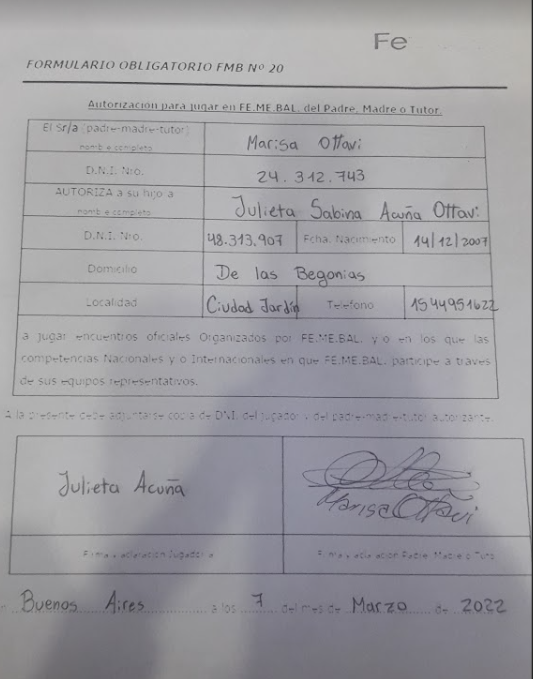 Fe
FORMULARIO OBLIGATORIO FMB Nº 20
Autorización para jugar en FE.ME.BAL. del Padre, Madre o Tutor.
El Sr/a (padre-madre-tutor) Marisa Ottavi
nombre completo
D.N.I. Nro. 24.312.743
AUTORIZA a su hijo/a Julieta Sabina Acuña Ottavi
nombre completo
D.N.I. Nro. 48.313.907 Fcha. Nacimiento 14/12/2007
Domicilio De las Begonias
Localidad Ciudad Jardín Teléfono 1544951622
a jugar encuentros oficiales Organizados por FE.ME.BAL. y o en los que las
competencias Nacionales y o Internacionales en que FE.ME.BAL. participe a través
de sus equipos representativos.
A la presente debe adjuntarse copia de DNI. del jugador y del padre-madre-tutor autorizante.
Julieta Acuña
Marisa Ottavi
Firma y aclaración Jugador/a Firma y aclaración Padre, Madre o Tutor
Buenos Aires a los 7 del mes de Marzo de 2022